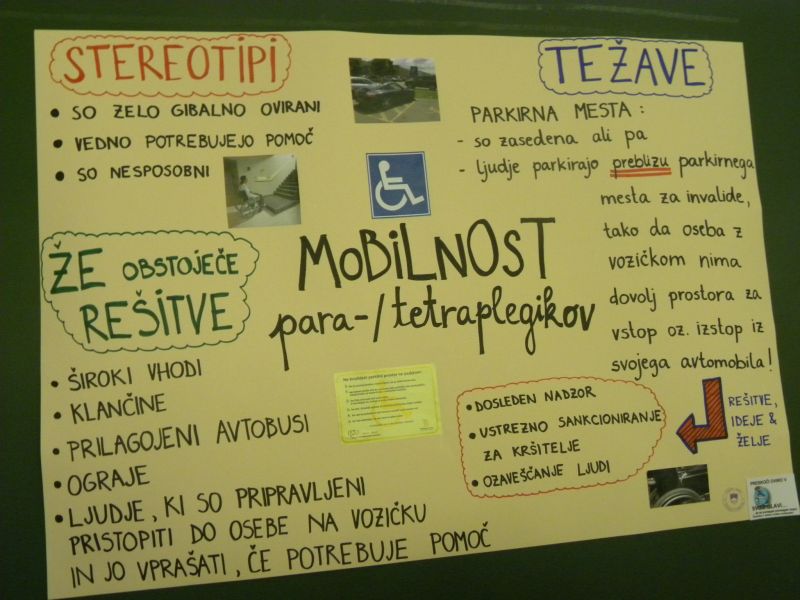 STEREOTIPI
• SO ZELO GIBALNO OVIRANI
• VEDNO POTREBUJEJO POMOČ
• SO NESPOSOBNI
TEŽAVE
PARKIRNA MESTA:
- so zasedena ali pa
- ljudje parkirajo preblizu parkirnega
mesta za invalide,
tako da oseba z
vozičkom nima
dovolj prostora za
vstop oz. izstop iz
svojega avtomobila!
MOBILNOST
para-/tetraplegikov
ŽE OBSTOJEČE
REŠITVE
• ŠIROKI VHODI
• KLANČINE
• PRILAGOJENI AVTOBUSI
• OGRAJE
• LJUDJE, KI SO PRIPRAVLJENI
PRISTOPITI DO OSEBE NA VOZIČKU
IN JO VPRAŠATI, ČE POTREBUJE POMOČ
• DOSLEDEN NADZOR
• USTREZNO SANKCIONIRANJE
ZA KRŠITELJE
• OZAVEŠČANJE LJUDI
REŠITVE,
IDEJE &
ŽELJE
PRESKOČI OVIRO V